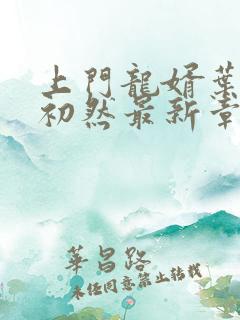 上門龍婿葉
初然最新章
華昌路
未经同意禁止转载